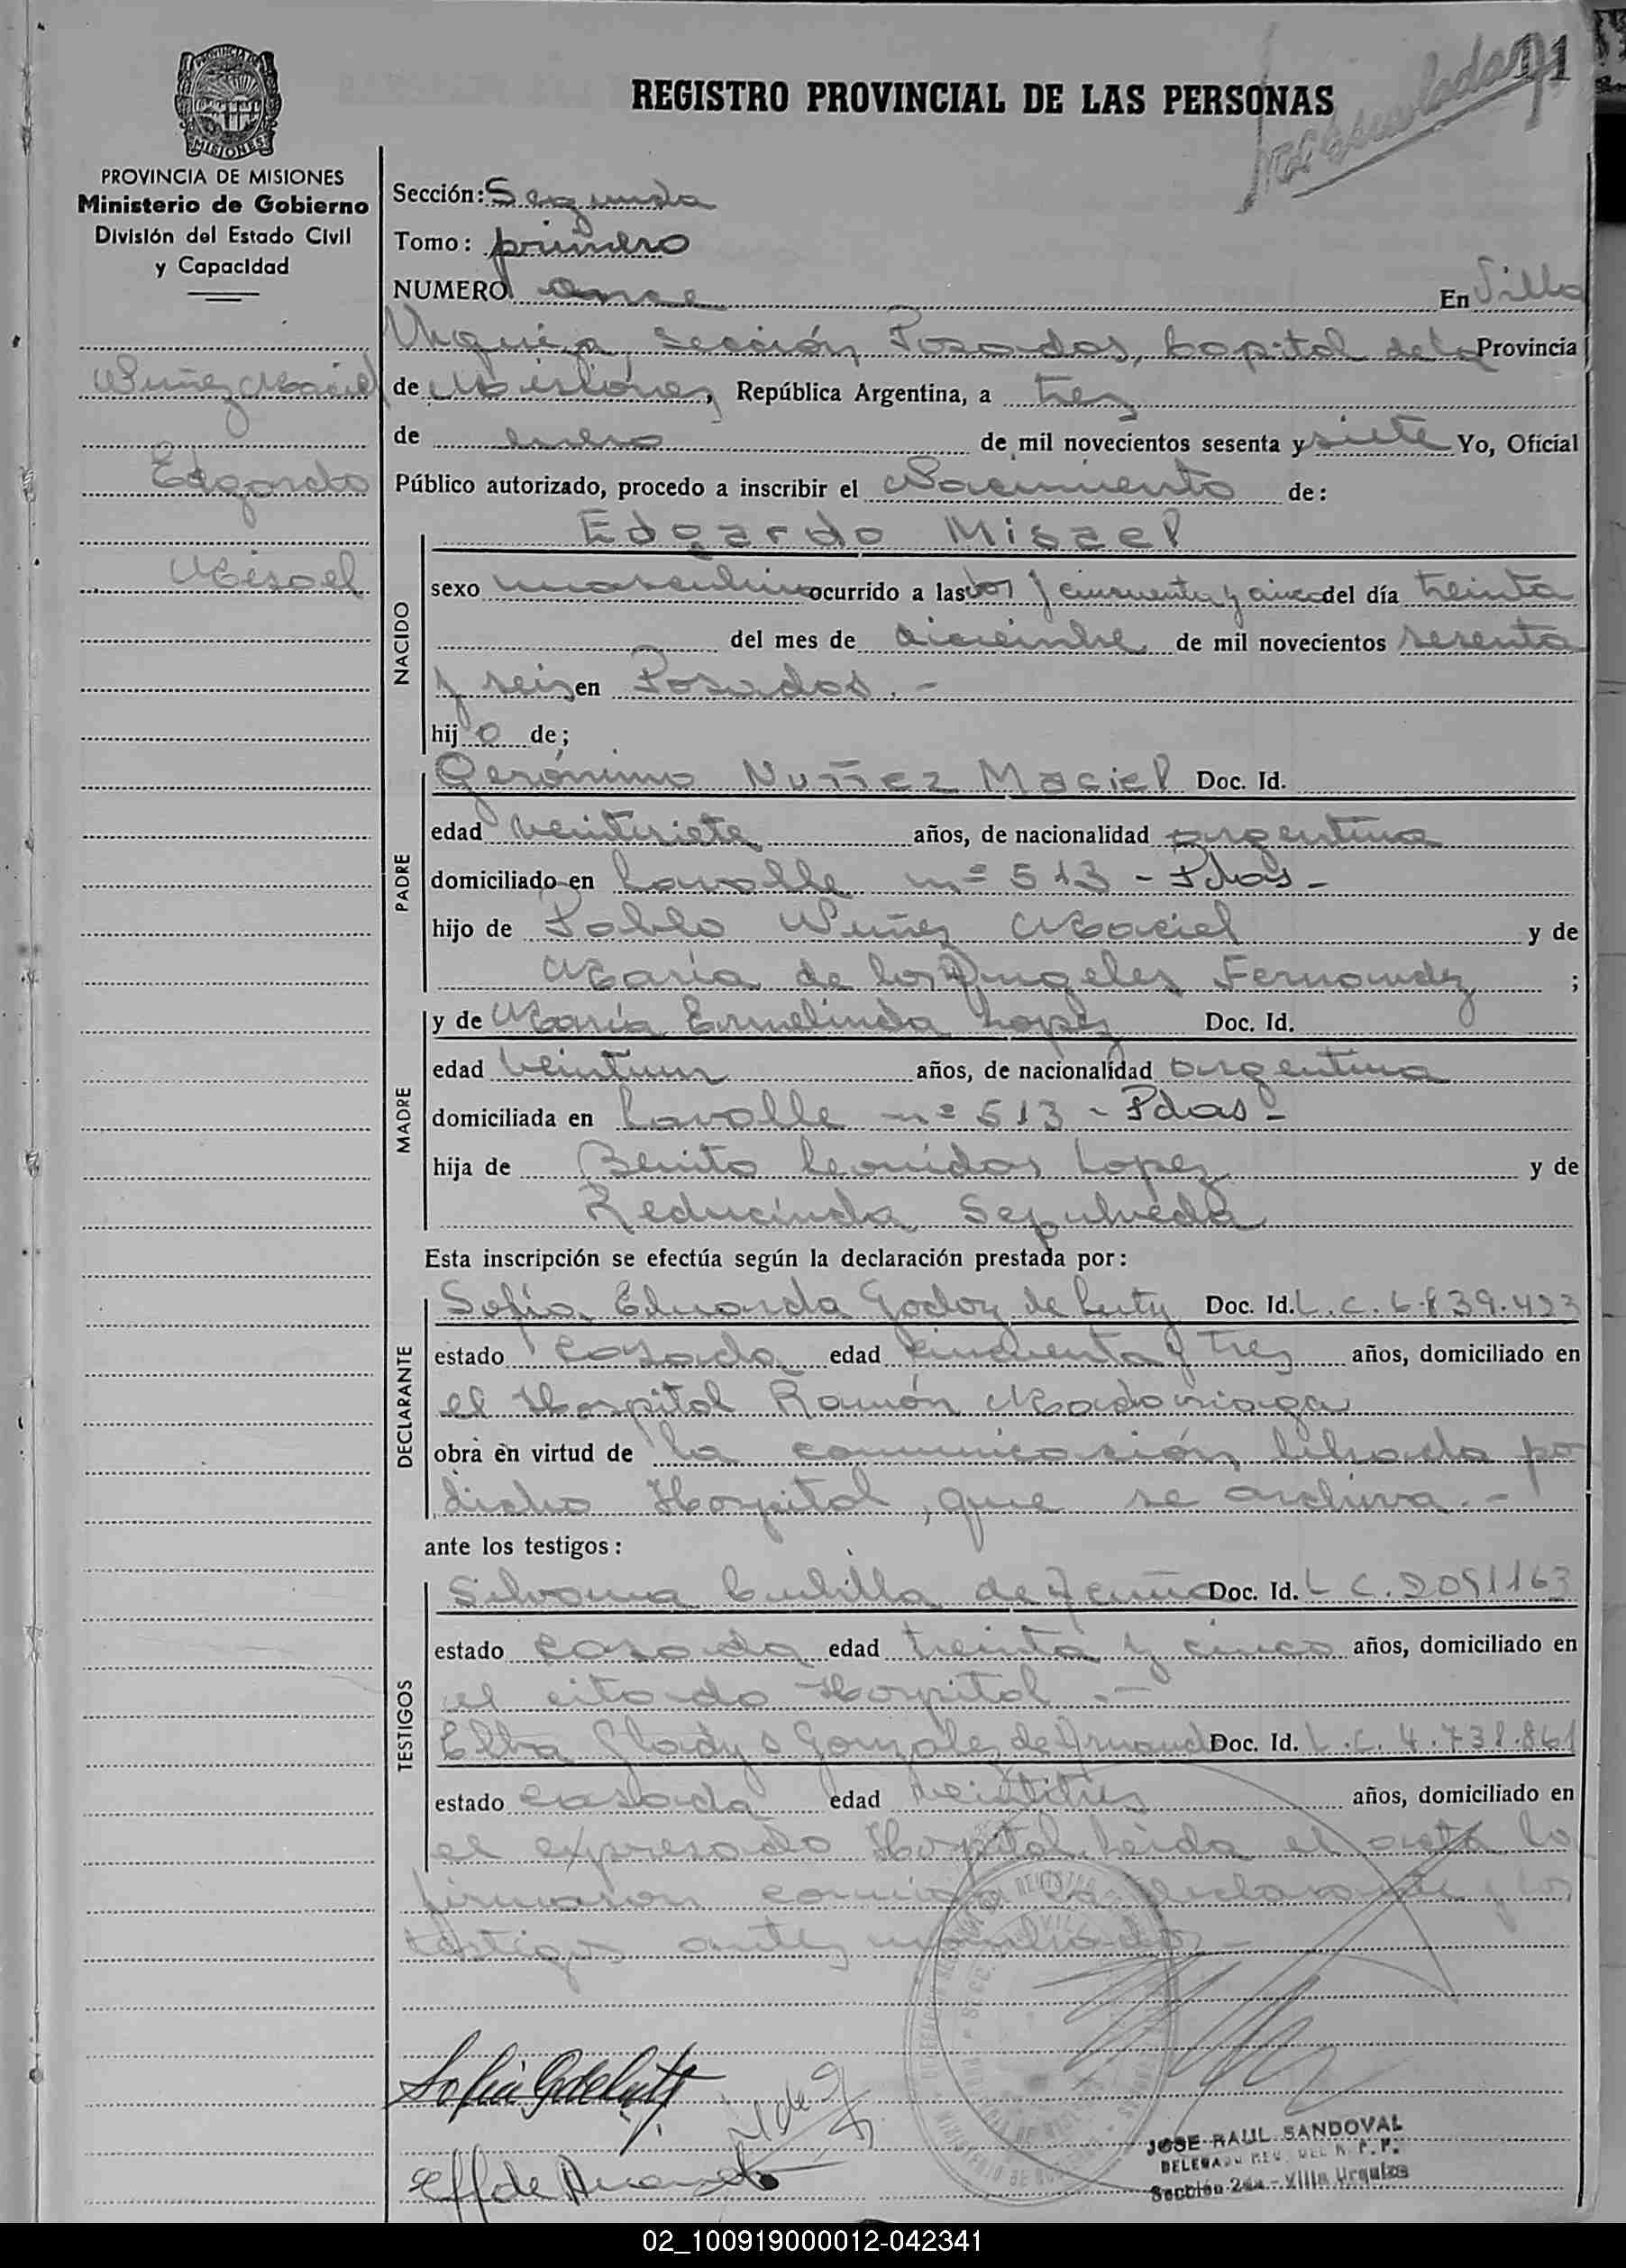 11
REGISTRO PROVINCIAL DE LAS PERSONAS
MISIONES
PROVINCIA DE MISIONES
Ministerio de Gobierno
División del Estado Civil
y Capacidad
Nuñez Maciel
Edgardo
Misael
Sección: Segunda
Tomo: primero
NUMERO once En Villa
Urquiza, Sección Posadas, Capital de la Provincia
de Misiones, República Argentina, a tres
de enero de mil novecientos sesenta y siete Yo, Oficial
Público autorizado, procedo a inscribir el Nacimiento de:
NACIDO
Edgardo Misael
sexo masculino ocurrido a las dos y cincuenta y cinco del día treinta
del mes de diciembre de mil novecientos sesenta
y seis en Posadas.-
hijo de;
PADRE
Gerónimo Nuñez Maciel Doc. Id.
edad veintisiete años, de nacionalidad argentina
domiciliado en Lavalle nº 513 - Pdas -
hijo de Pablo Nuñez Maciel y de
María de los Angeles Fernandz ;
MADRE
y de María Ermelinda Lopez Doc. Id.
edad veintiun años, de nacionalidad argentina
domiciliada en Lavalle nº 513 - Pdas -
hija de Benito Leonidas Lopez y de
Reducinda Sepulveda
Esta inscripción se efectúa según la declaración prestada por:
DECLARANTE
Sofía Eduarda Godoy de Doc. Id. L.C. 6.839.423
estado casada edad cincuenta y tres años, domiciliado en
el Hospital Ramón Madariaga
obra en virtud de la comunicación librada por
dicho Hospital, que se archiva.-
ante los testigos:
TESTIGOS
Silvana de Doc. Id. L C. 2051163
estado casada edad treinta y cinco años, domiciliado en
el citado Hospital.-
Elba Gladys Gonzalez de Doc. Id. L.C. 4.738.861
estado casada edad veintitrés años, domiciliado en
el expresado Hospital. Leida el acta la
firmaron conmigo la declarante y los
testigos antes nombrados.-
JOSE RAUL SANDOVAL
DELEGADO REG. DEL R. P. P.
Sección 2da - Villa Urquiza
02_100919000012-042341